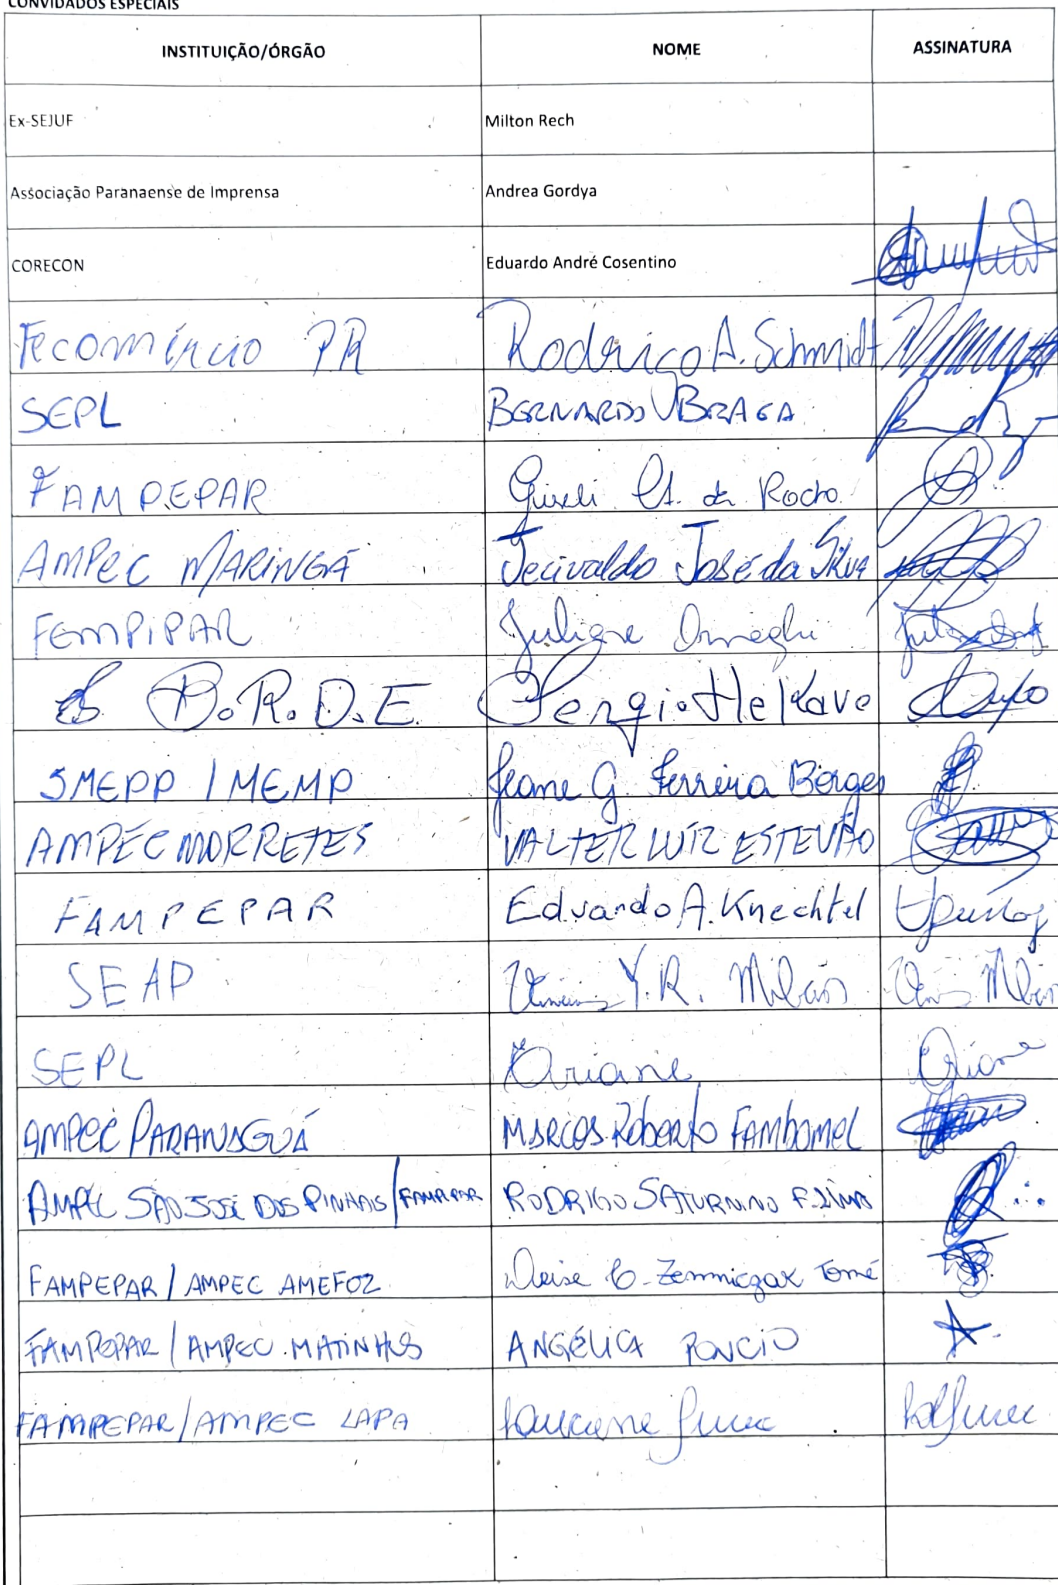 CONVIDADOS ESPECIAIS
INSTITUIÇÃO/ÓRGÃO NOME ASSINATURA
Ex-SEJUF Milton Rech
Associação Paranaense de Imprensa Andrea Gordya
CORECON Eduardo André Cosentino
Fecomércio PR Rodrigo A. Schmidt
SEPL BERNARDO BRAGA
FAMPEPAR Giseli da Rocha
AMPEC MARINGÁ Jecivaldo José da Silva
FEMPIPAR Juliane
B.R.D.E. Sergio
SMEPP / MEMP Jeane G. Ferreira Borges
AMPEC MORRETES VALTER LUIZ ESTEVÃO
FAMPEPAR Eduardo A. Knechtel
SEAP Y.R.
SEPL Ariane Ariane
AMPEC PARANAGUÁ MARCOS Roberto FAMBOMEL
AMPEC SÃO JOSÉ DOS PINHAIS / FAMPEPAR RODRIGO SATURNINO
FAMPEPAR / AMPEC AMEFOZ Deise C. Zemniczak Tomé
FAMPEPAR / AMPEC MATINHOS ANGÉLICA PONCIO
FAMPEPAR / AMPEC LAPA